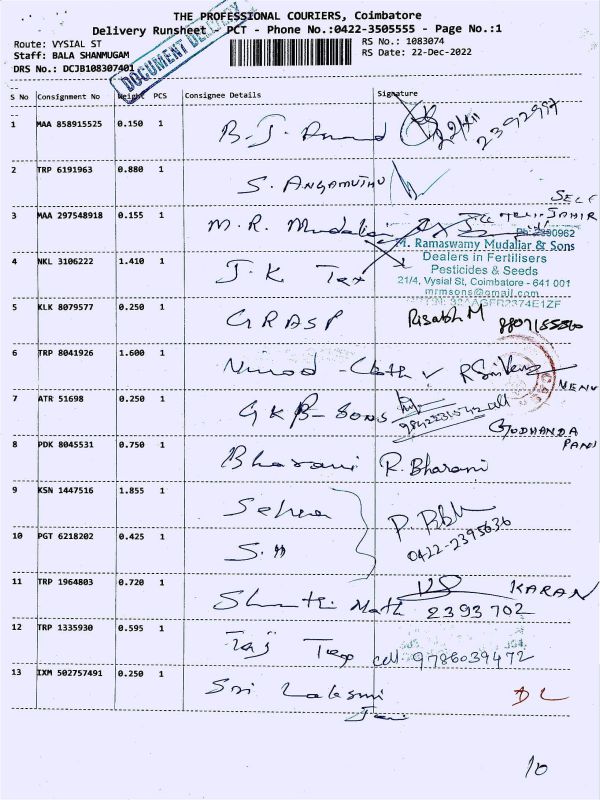 THE PROFESSIONAL COURIERS, Coimbatore
Delivery Runsheet - PCT - Phone No.:0422-3505555 - Page No.:1
Route: VYSIAL ST
Staff: BALA SHANMUGAM
DRS No.: DCJB108307401
RS No.: 1083074
RS Date: 22-Dec-2022
DOCUMENT DELIVERY
S No Consignment No Weight PCS Consignee Details Signature
1 MAA 858915525 0.150 1 B. J. Anand 22/12 2392997
2 TRP 6191963 0.880 1 S. ANGAMUTHU
SELF
3 MAA 297548918 0.155 1 M. R. Mudaliar
Ph: 2390962
M. Ramaswamy Mudaliar & Sons
Dealers in Fertilisers
Pesticides & Seeds
21/4, Vysial St, Coimbatore - 641 001
mrmsons@gmail.com
4 NKL 3106222 1.410 1 J. K Tex
5 KLK 8079577 0.250 1 GRASP Risabh M
6 TRP 8041926 1.600 1
7 ATR 51698 0.250 1 GKB - Sons
8 PDK 8045531 0.750 1 Bharani R. Bharani
9 KSN 1447516 1.855 1
10 PGT 6218202 0.425 1 S. "
0422-2395636
11 TRP 1964803 0.720 1 Shanthi Math 2393702 KARAN
12 TRP 1335930 0.595 1 Taj cell 9786039472
13 IXM 502757491 0.250 1 Sri Laksmi DL
10